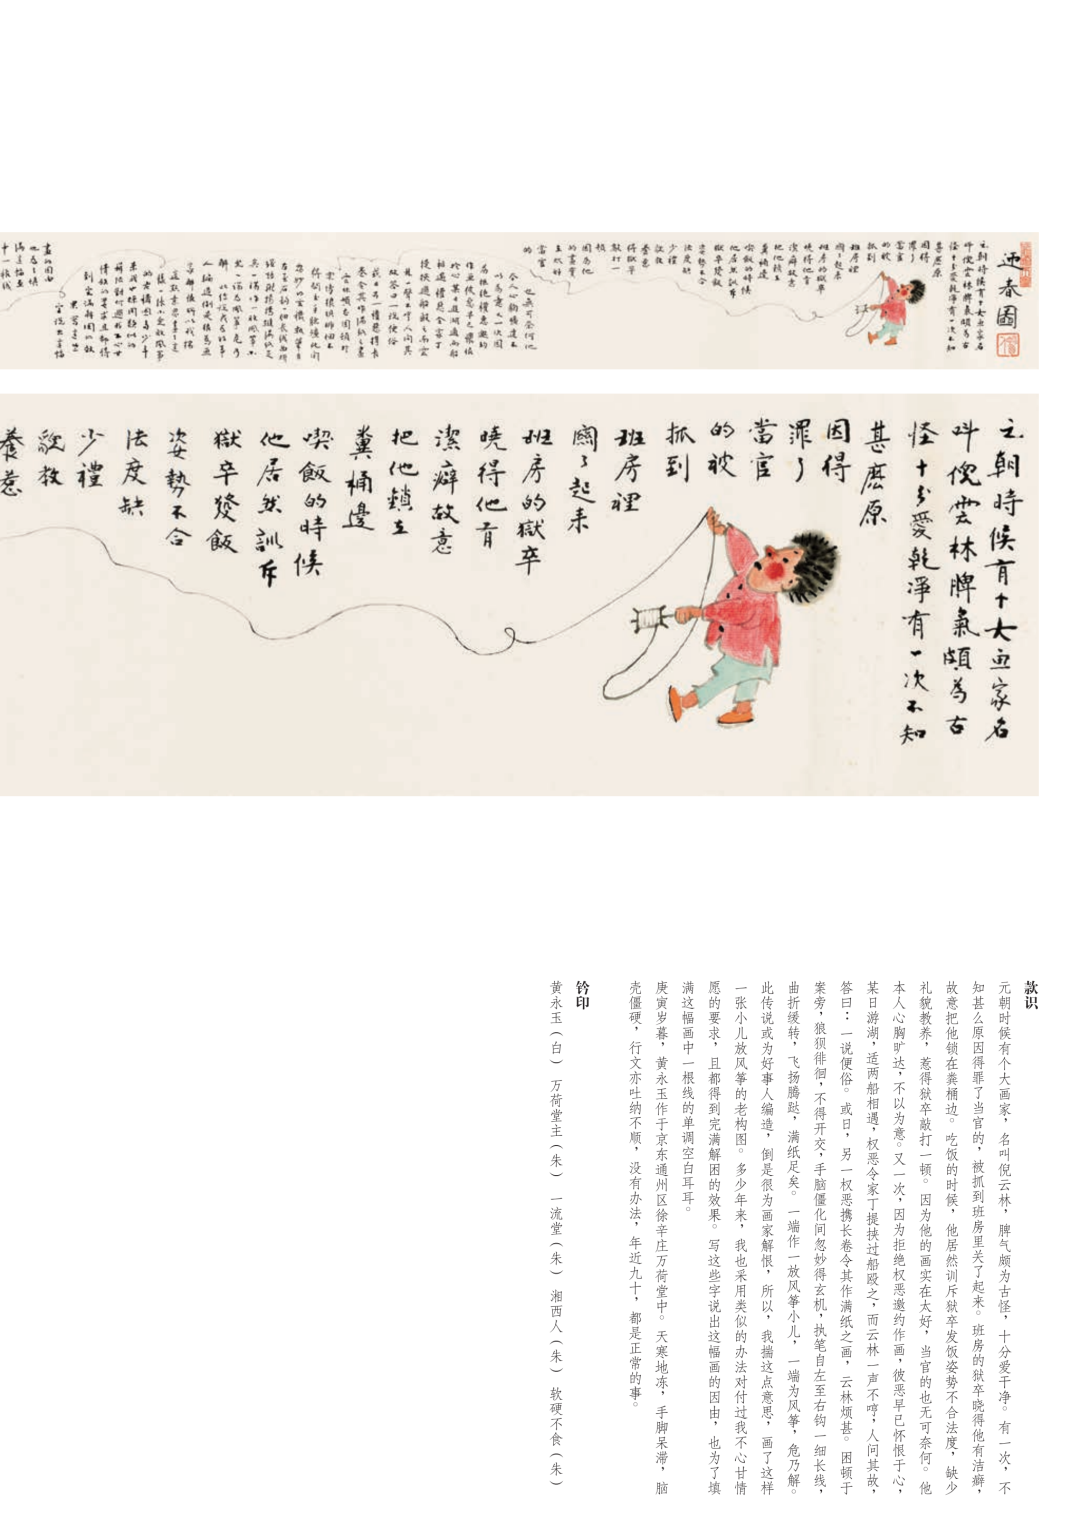 迎春圖
元朝時候有个大画家名
叫倪雲林脾氣頗為古
怪十分愛乾淨有一次不知
甚麽原
因得
罪了
當官
的被
抓到
班房裡
關了起来
班房的獄卒
曉得他有
潔癖故意
把他鎖在
糞桶邊
喫飯的時候
他居然訓斥
獄卒發飯
姿勢不合
法度缺
少禮
貌教
養惹
得獄卒
敲打一
頓
因為他
的畫實
在太好
當官
的
也無可奈何他
元朝時候有个大画家名
叫倪雲林脾氣頗為古
怪十分愛乾淨有一次不知
甚麽原
因得
罪了
當官
的被
抓到
班房裡
關了起来
班房的獄卒
曉得他有
潔癖故意
把他鎖在
糞桶邊
喫飯的時候
他居然訓斥
獄卒發飯
姿勢不合
法度缺
少禮
貌教
養惹
款识
元朝时候有个大画家，名叫倪云林，脾气颇为古怪，十分爱干净。有一次，不
知甚么原因得罪了当官的，被抓到班房里关了起来。班房的狱卒晓得他有洁癖，
故意把他锁在粪桶边。吃饭的时候，他居然训斥狱卒发饭姿势不合法度，缺少
礼貌教养，惹得狱卒敲打一顿。因为他的画实在太好，当官的也无可奈何。他
本人心胸旷达，不以为意。又一次，因为拒绝权恶邀约作画，彼恶早已怀恨于心，
某日游湖，适两船相遇，权恶令家丁提挟过船殴之，而云林一声不哼，人问其故，
答曰：一说便俗。或日，另一权恶携长卷令其作满纸之画，云林烦甚。困顿于
案旁，狼狈徘徊，不得开交，手脑僵化间忽妙得玄机，执笔自左至右钩一细长线，
曲折缓转，飞扬腾跶，满纸足矣。一端作一放风筝小儿，一端为风筝，危乃解。
此传说或为好事人编造，倒是很为画家解恨，所以，我揣这点意思，画了这样
一张小儿放风筝的老构图。多少年来，我也采用类似的办法对付过我不心甘情
愿的要求，且都得到完满解困的效果。写这些字说出这幅画的因由，也为了填
满这幅画中一根线的单调空白耳耳。
庚寅岁暮，黄永玉作于京东通州区徐辛庄万荷堂中。天寒地冻，手脚呆滞，脑
壳僵硬，行文亦吐纳不顺，没有办法，年近九十，都是正常的事。
钤印
黄永玉（白） 万荷堂主（朱） 一流堂（朱） 湘西人（朱） 软硬不食（朱）